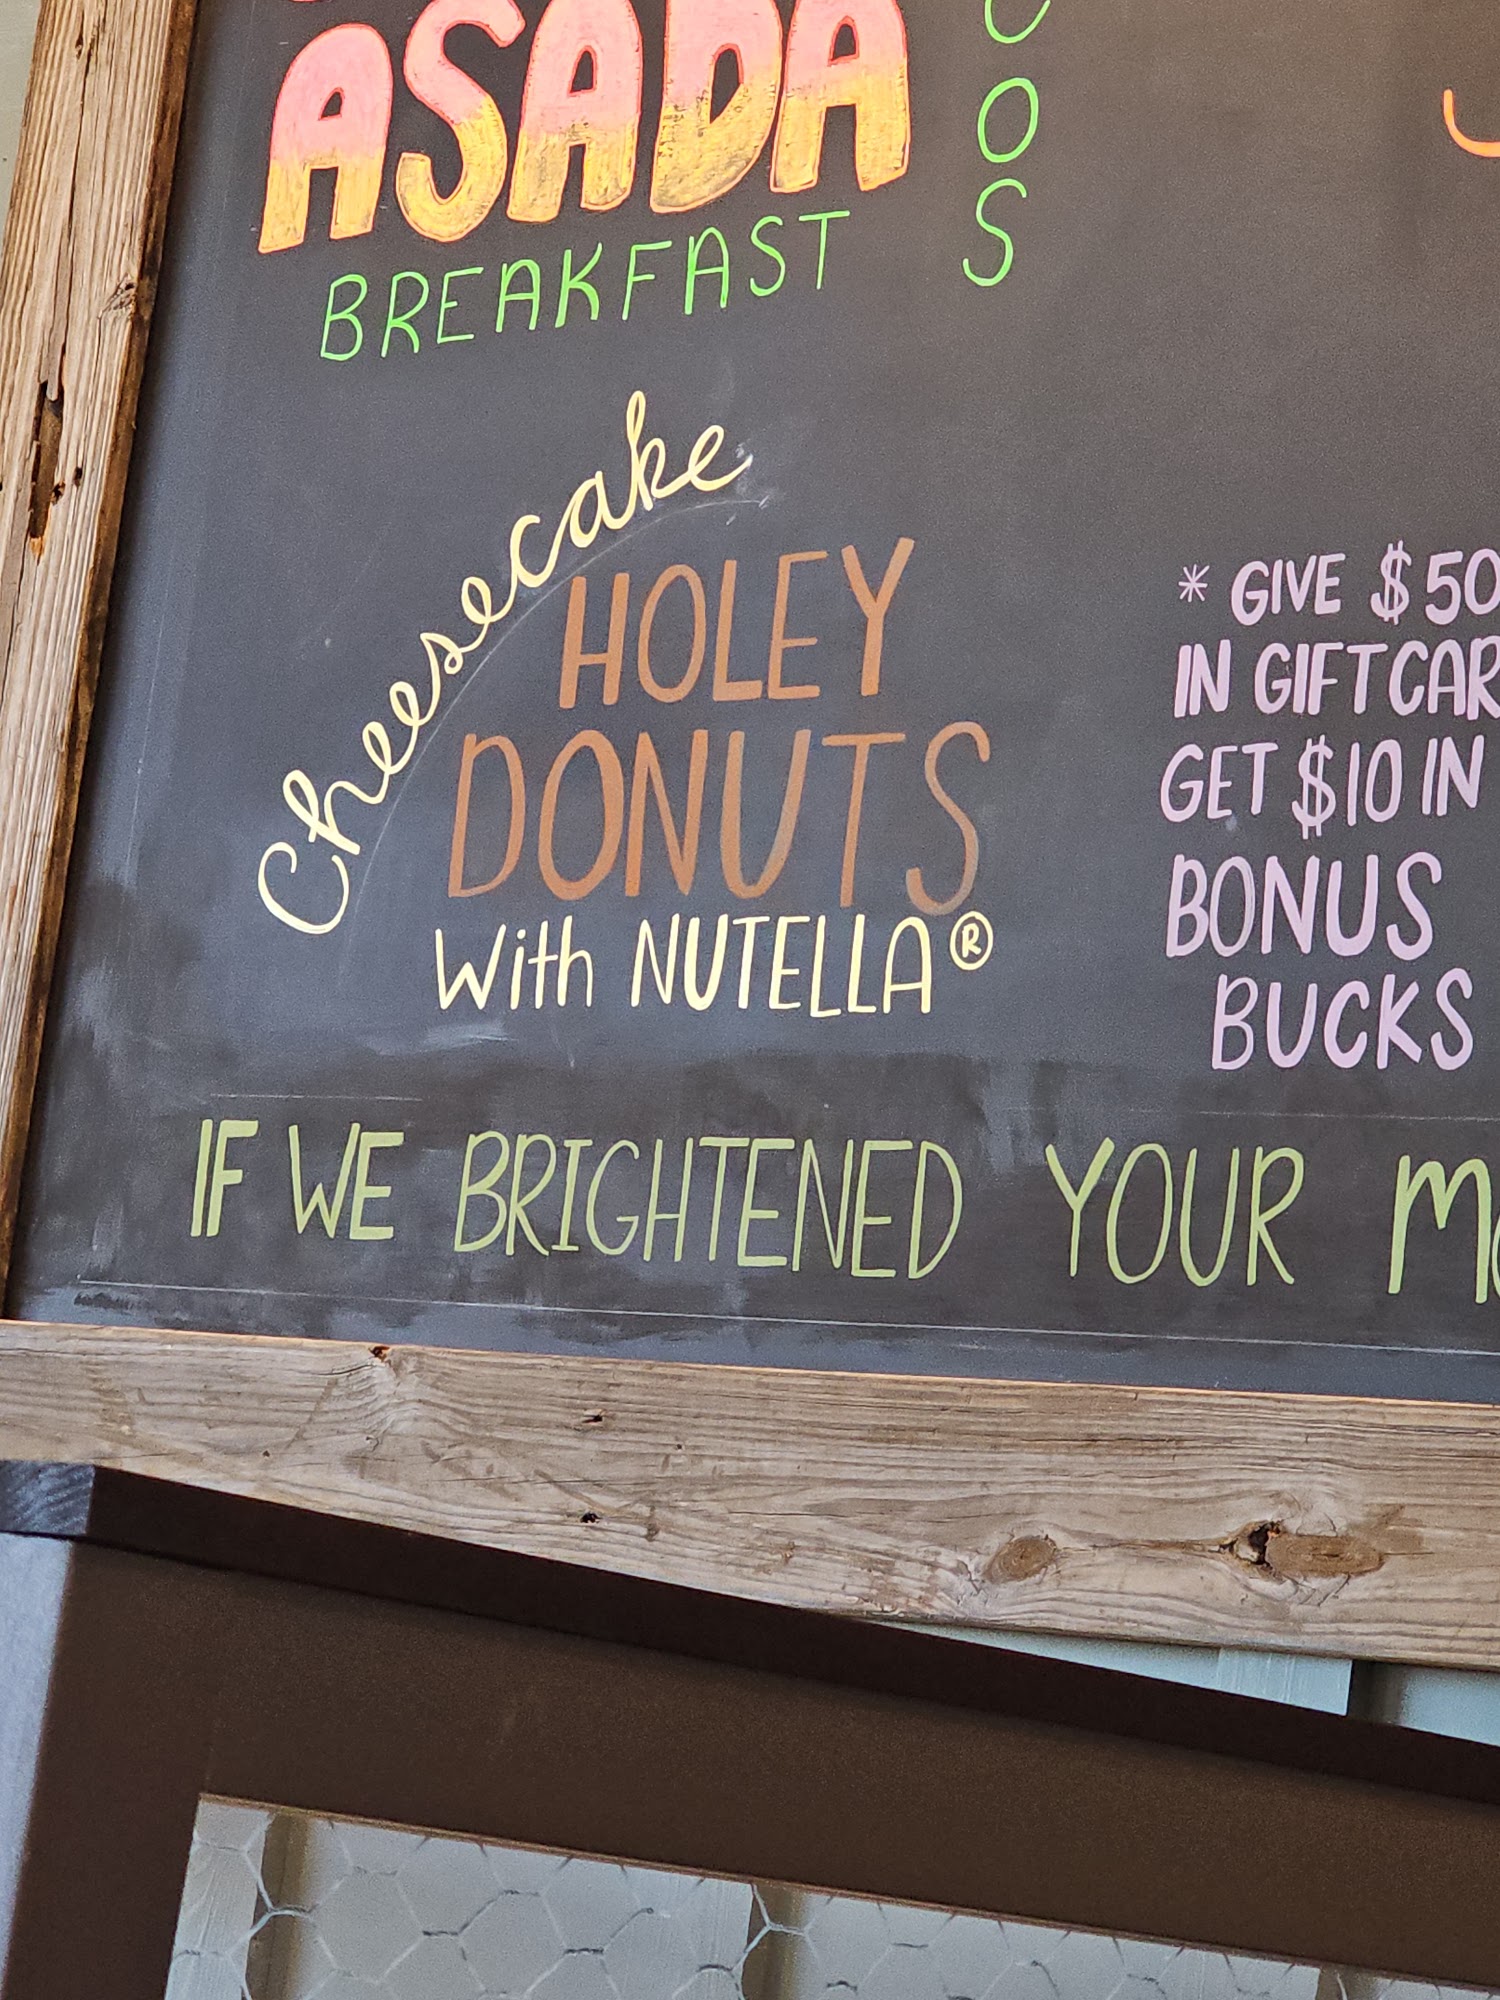 ASADA
BREAKFAST
COS
Cheesecake
HOLEY
DONUTS
With NUTELLA®
* GIVE $50
IN GIFTCAR
GET $10 IN
BONUS
BUCKS
IF WE BRIGHTENED YOUR